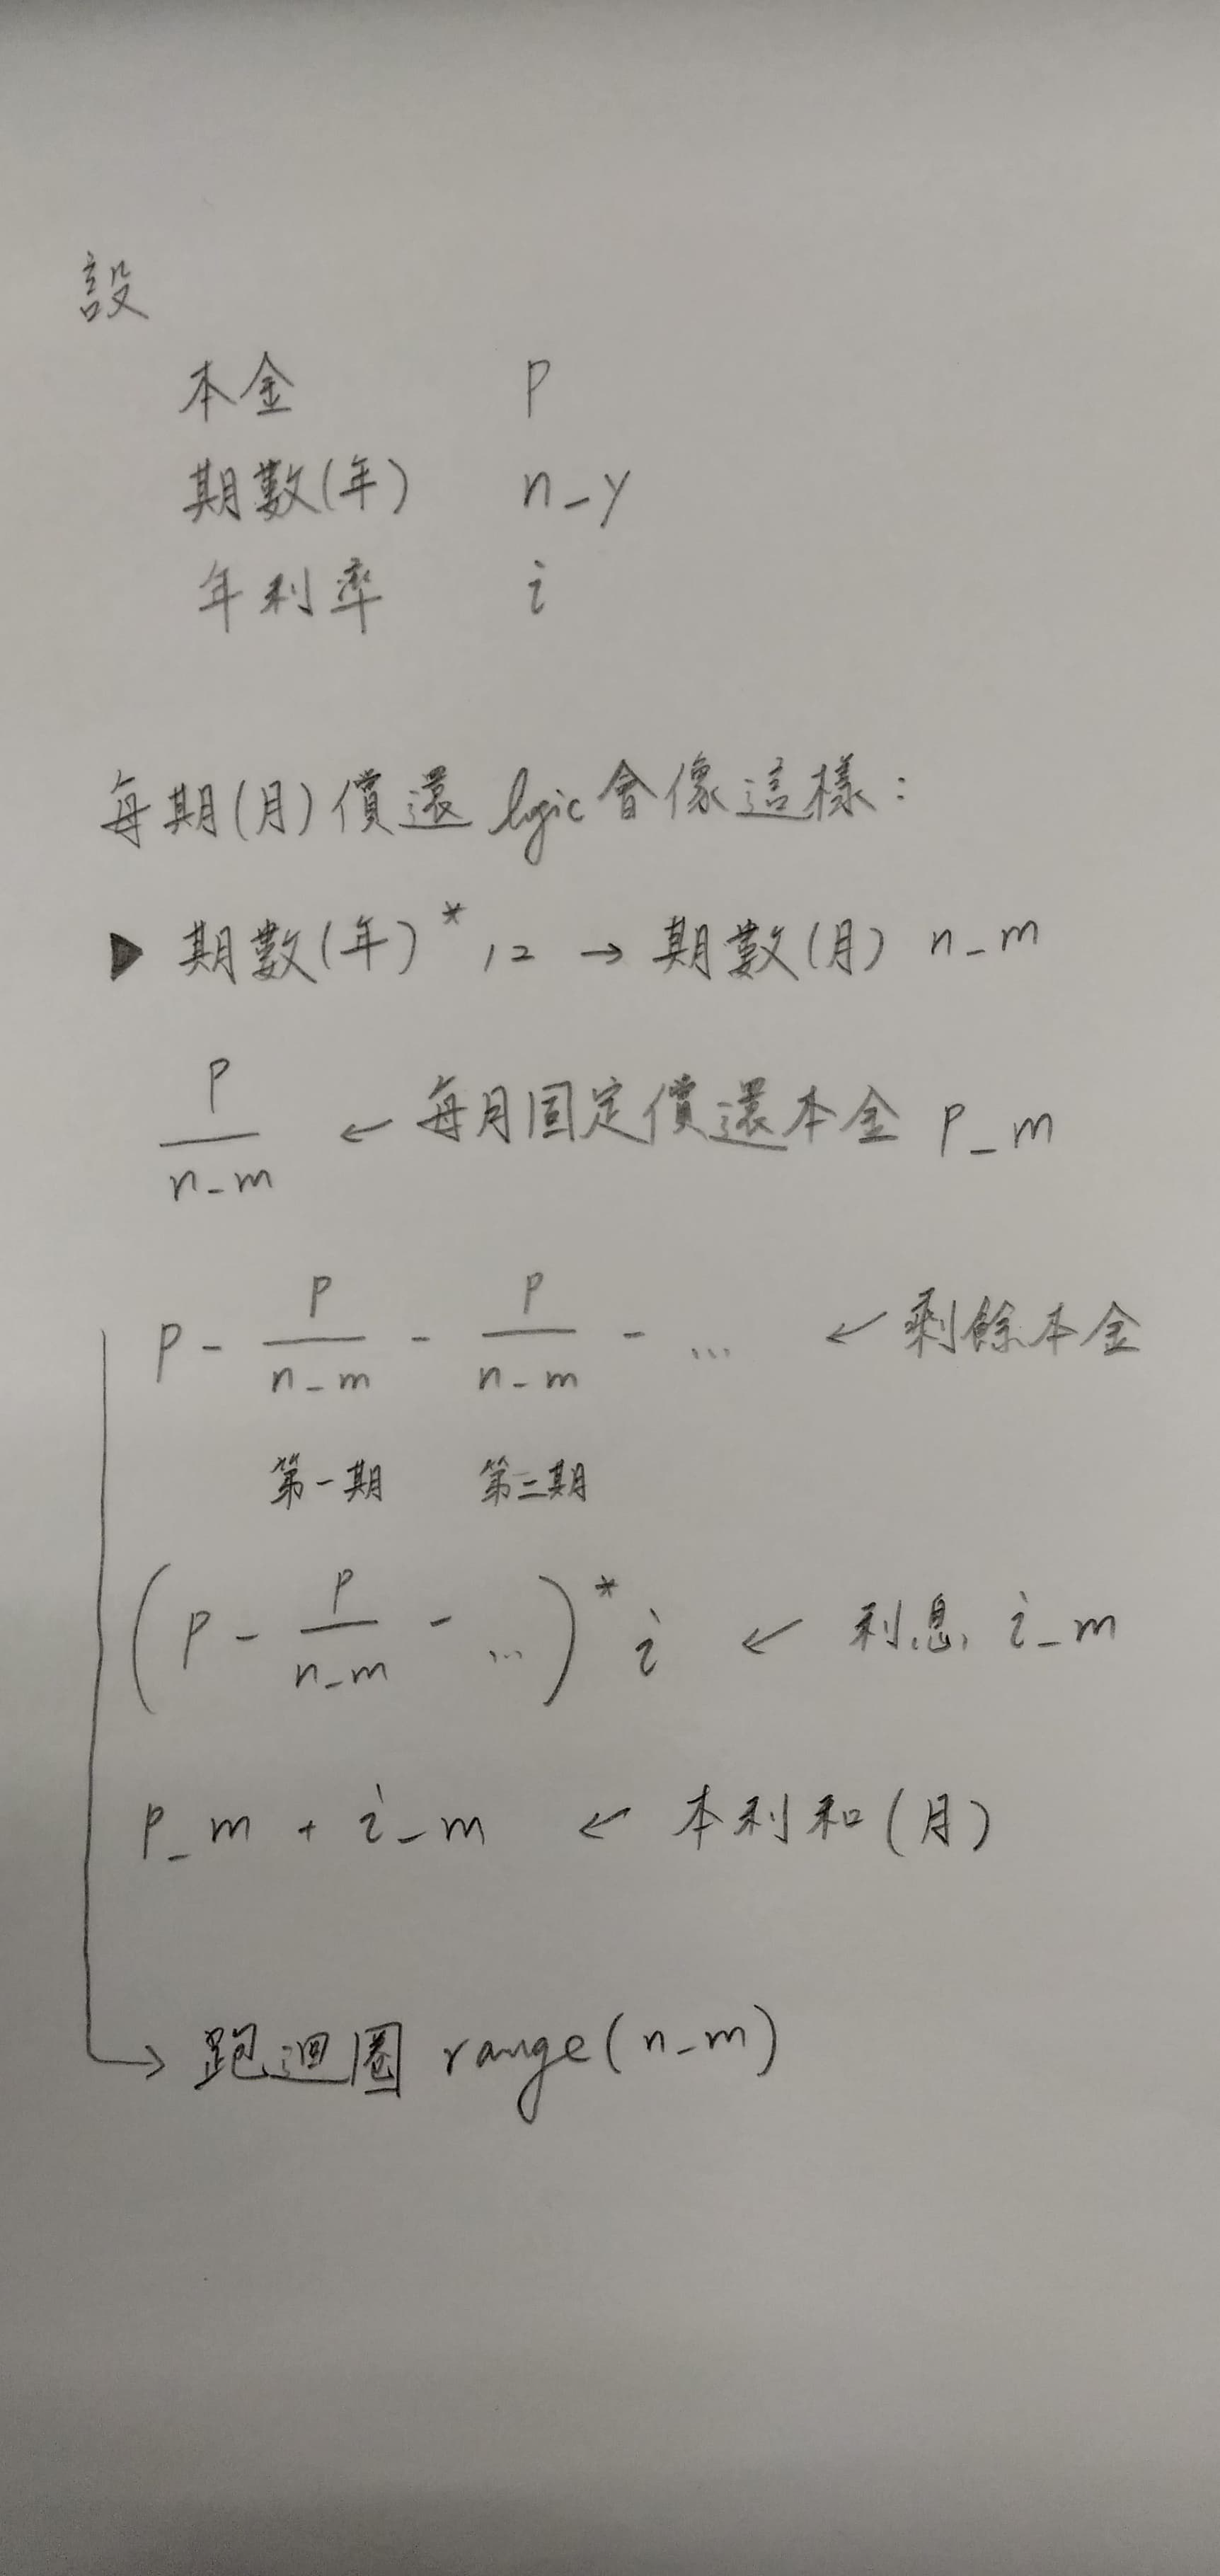 設
本金 p
期數(年) n_y
年利率 i
每期(月)償還 logic會像這樣:
▶ 期數(年)*12 → 期數(月) n_m
p/n_m ← 每月固定償還本金 p_m
p - p/n_m - p/n_m - ... ← 剩餘本金
第一期 第二期
(p - p/n_m - ...)* i ← 利息 i_m
p_m + i_m ← 本利和(月)
→ 跑迴圈 range(n_m)